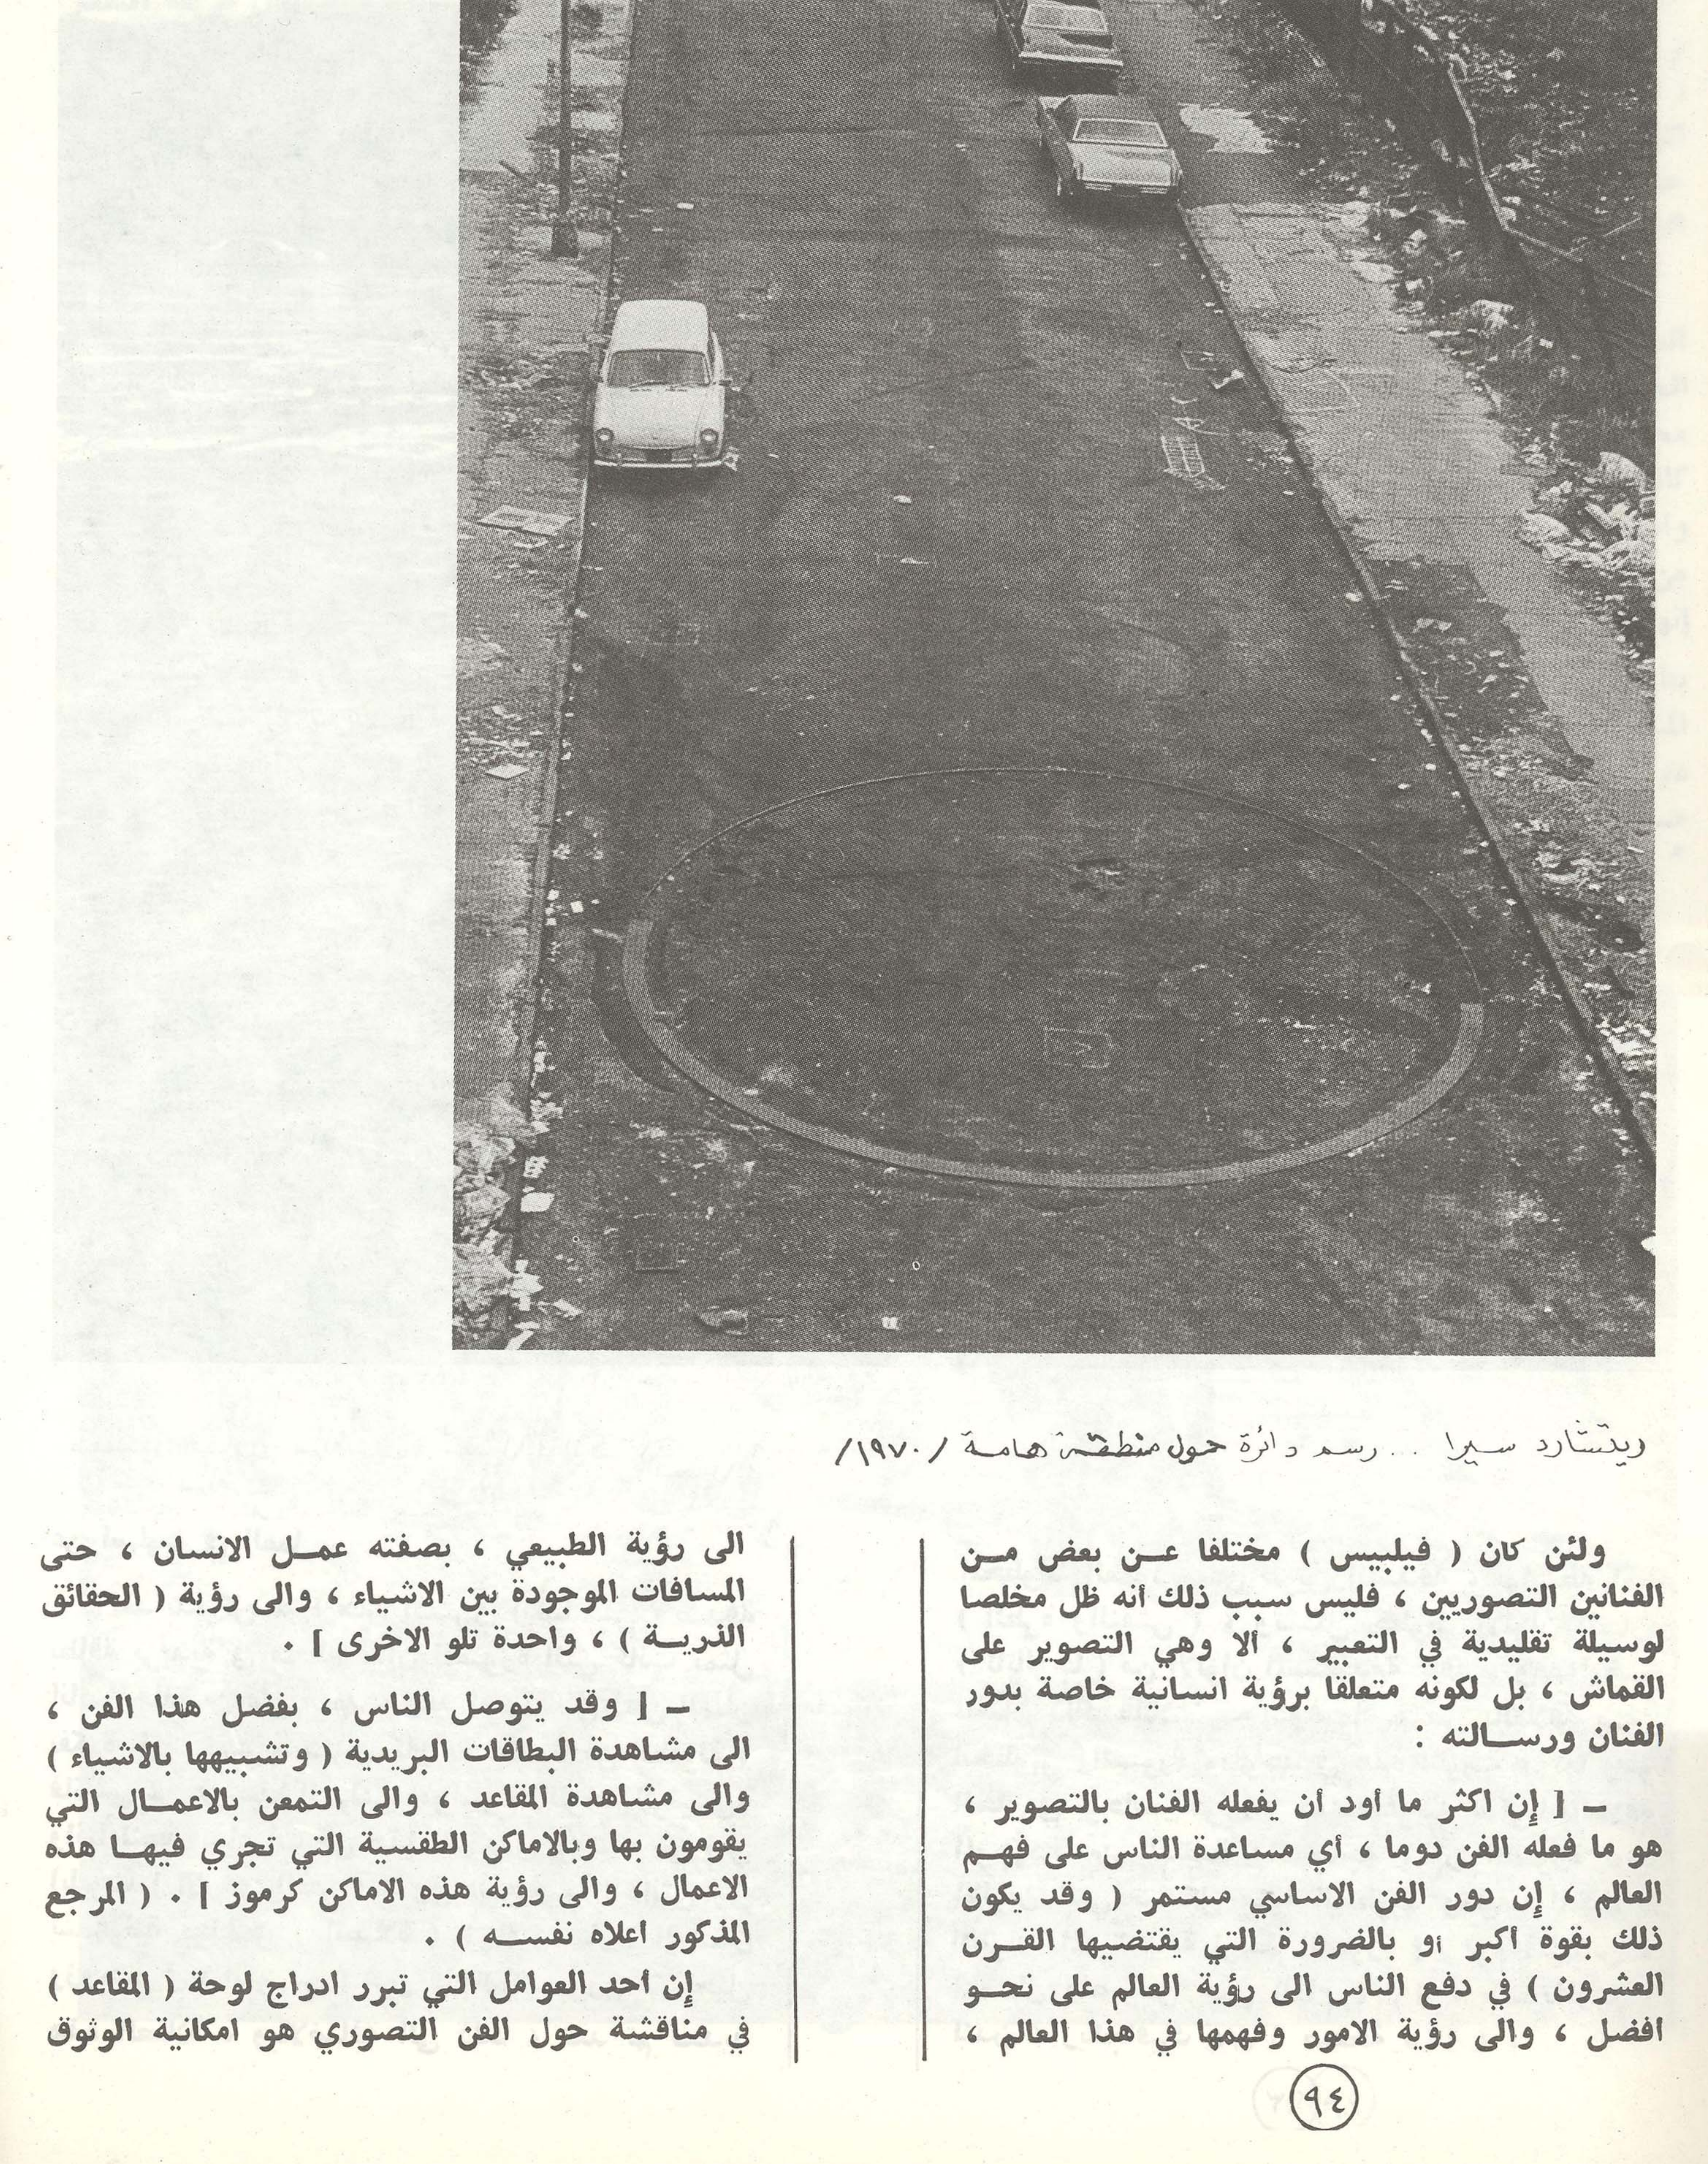 ريتشارد سيرا ... رسم دائرة حول منطقة هامة /١٩٧٠/
ولئن كان ( فيليبس ) مختلفا عـن بعض مـن
الفنانين التصوريين ، فليس سبب ذلك أنه ظل مخلصا
لوسيلة تقليدية في التعبير ، ألا وهي التصوير على
القماش ، بل لكونه متعلقا برؤية انسانية خاصة بدور
الفنان ورســالته :
ـ [ إن اكثر ما أود أن يفعله الفنان بالتصوير ،
هو ما فعله الفن دوما ، أي مساعدة الناس على فهـم
العالم ، إن دور الفن الاساسي مستمر ( وقد يكون
ذلك بقوة أكبر أو بالضرورة التي يقتضيها القـرن
العشرون ) في دفع الناس الى رؤية العالم على نحـو
افضل ، والى رؤية الامور وفهمها في هذا العالم ،
الى رؤية الطبيعي ، بصفته عمـل الانسان ، حتى
المسافات الموجودة بين الاشياء ، والى رؤية ( الحقائق
الذريـة ) ، واحدة تلو الاخرى ] .
ـ [ وقد يتوصل الناس ، بفضل هذا الفن ،
الى مشاهدة البطاقات البريدية ( وتشبيهها بالاشياء )
والى مشاهدة المقاعد ، والى التمعن بالاعمـال التي
يقومون بها وبالاماكن الطقسية التي تجري فيهـا هذه
الاعمال ، والى رؤية هذه الاماكن كرموز ] . ( المرجع
المذكور اعلاه نفســه ) .
إن أحد العوامل التي تبرر ادراج لوحة ( المقاعد )
في مناقشة حول الفن التصوري هو امكانية الوثوق
٩٤